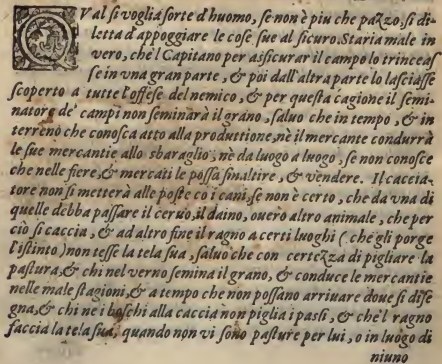 QVal si voglia sorte d'huomo, se non è piu che pazzo, si di
letta d'appoggiare le cose sue al sicuro. Staria male in
vero, che'l Capitano per assicurar il campo lo trinceas
se in vna gran parte, & poi dall'altra parte lo lasciasse
scoperto a tutte l'offese del nemico, & per questa cagione il semi-
natore de' campi non seminarà il grano, saluo che in tempo, & in
terreno che conosca atto alla produttione, nè il mercante condurrà
le sue mercantie allo sbaraglio, nè da luogo a luogo, se non conosce
che nelle fiere, & mercati le possa smaltire, & vendere. Il caccia-
tore non si metterà alle poste co i cani, se non è certo, che da vna di
quelle debba passare il ceruo, il daino, ouerò altro animale, che per
ciò si caccia, & ad altro fine il ragno a certi luoghi (che gli porge
l'istinto) non tesse la tela sua, saluo che con certezza di pigliare la
pastura, & chi nel verno semina il grano, & conduce le mercantie
nelle male stagioni, & a tempo che non possano arriuare doue si dise
gna, & chi ne i boschi alla caccia non piglia i passi, & che'l ragno
faccia la tela sua, quando non vi sono pasture per lui, o in luogo di
niuno